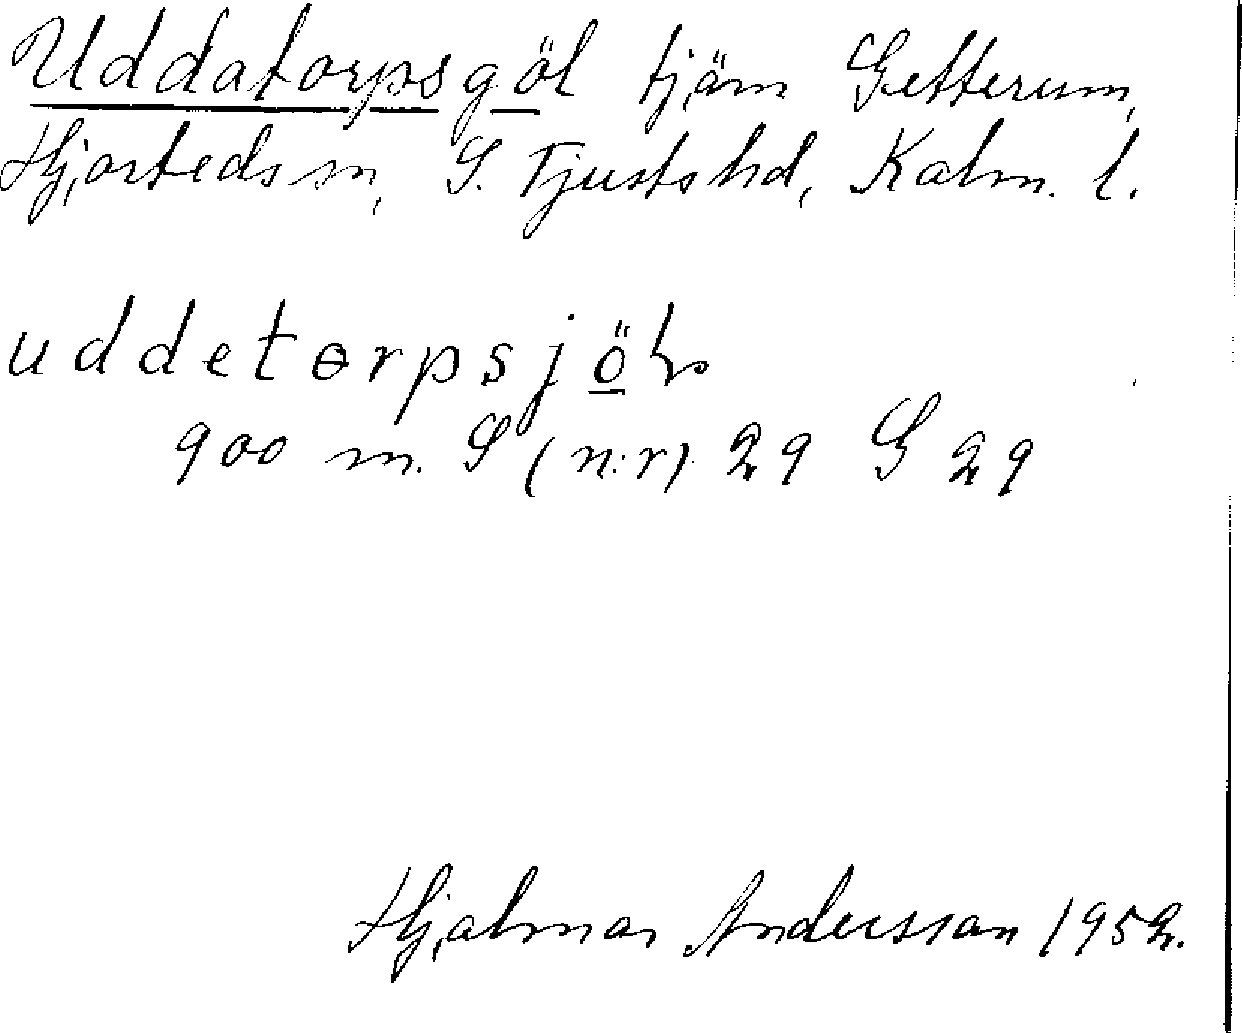 Uddatorpsgöl tjärn Getterum,
Hjorteds sn, S. Tjusts hd, Kalm. l.
uddetɵrpsjö̲ln
900 m. S (n:r) 29 G 29
Hjalmar Andersson 1952.